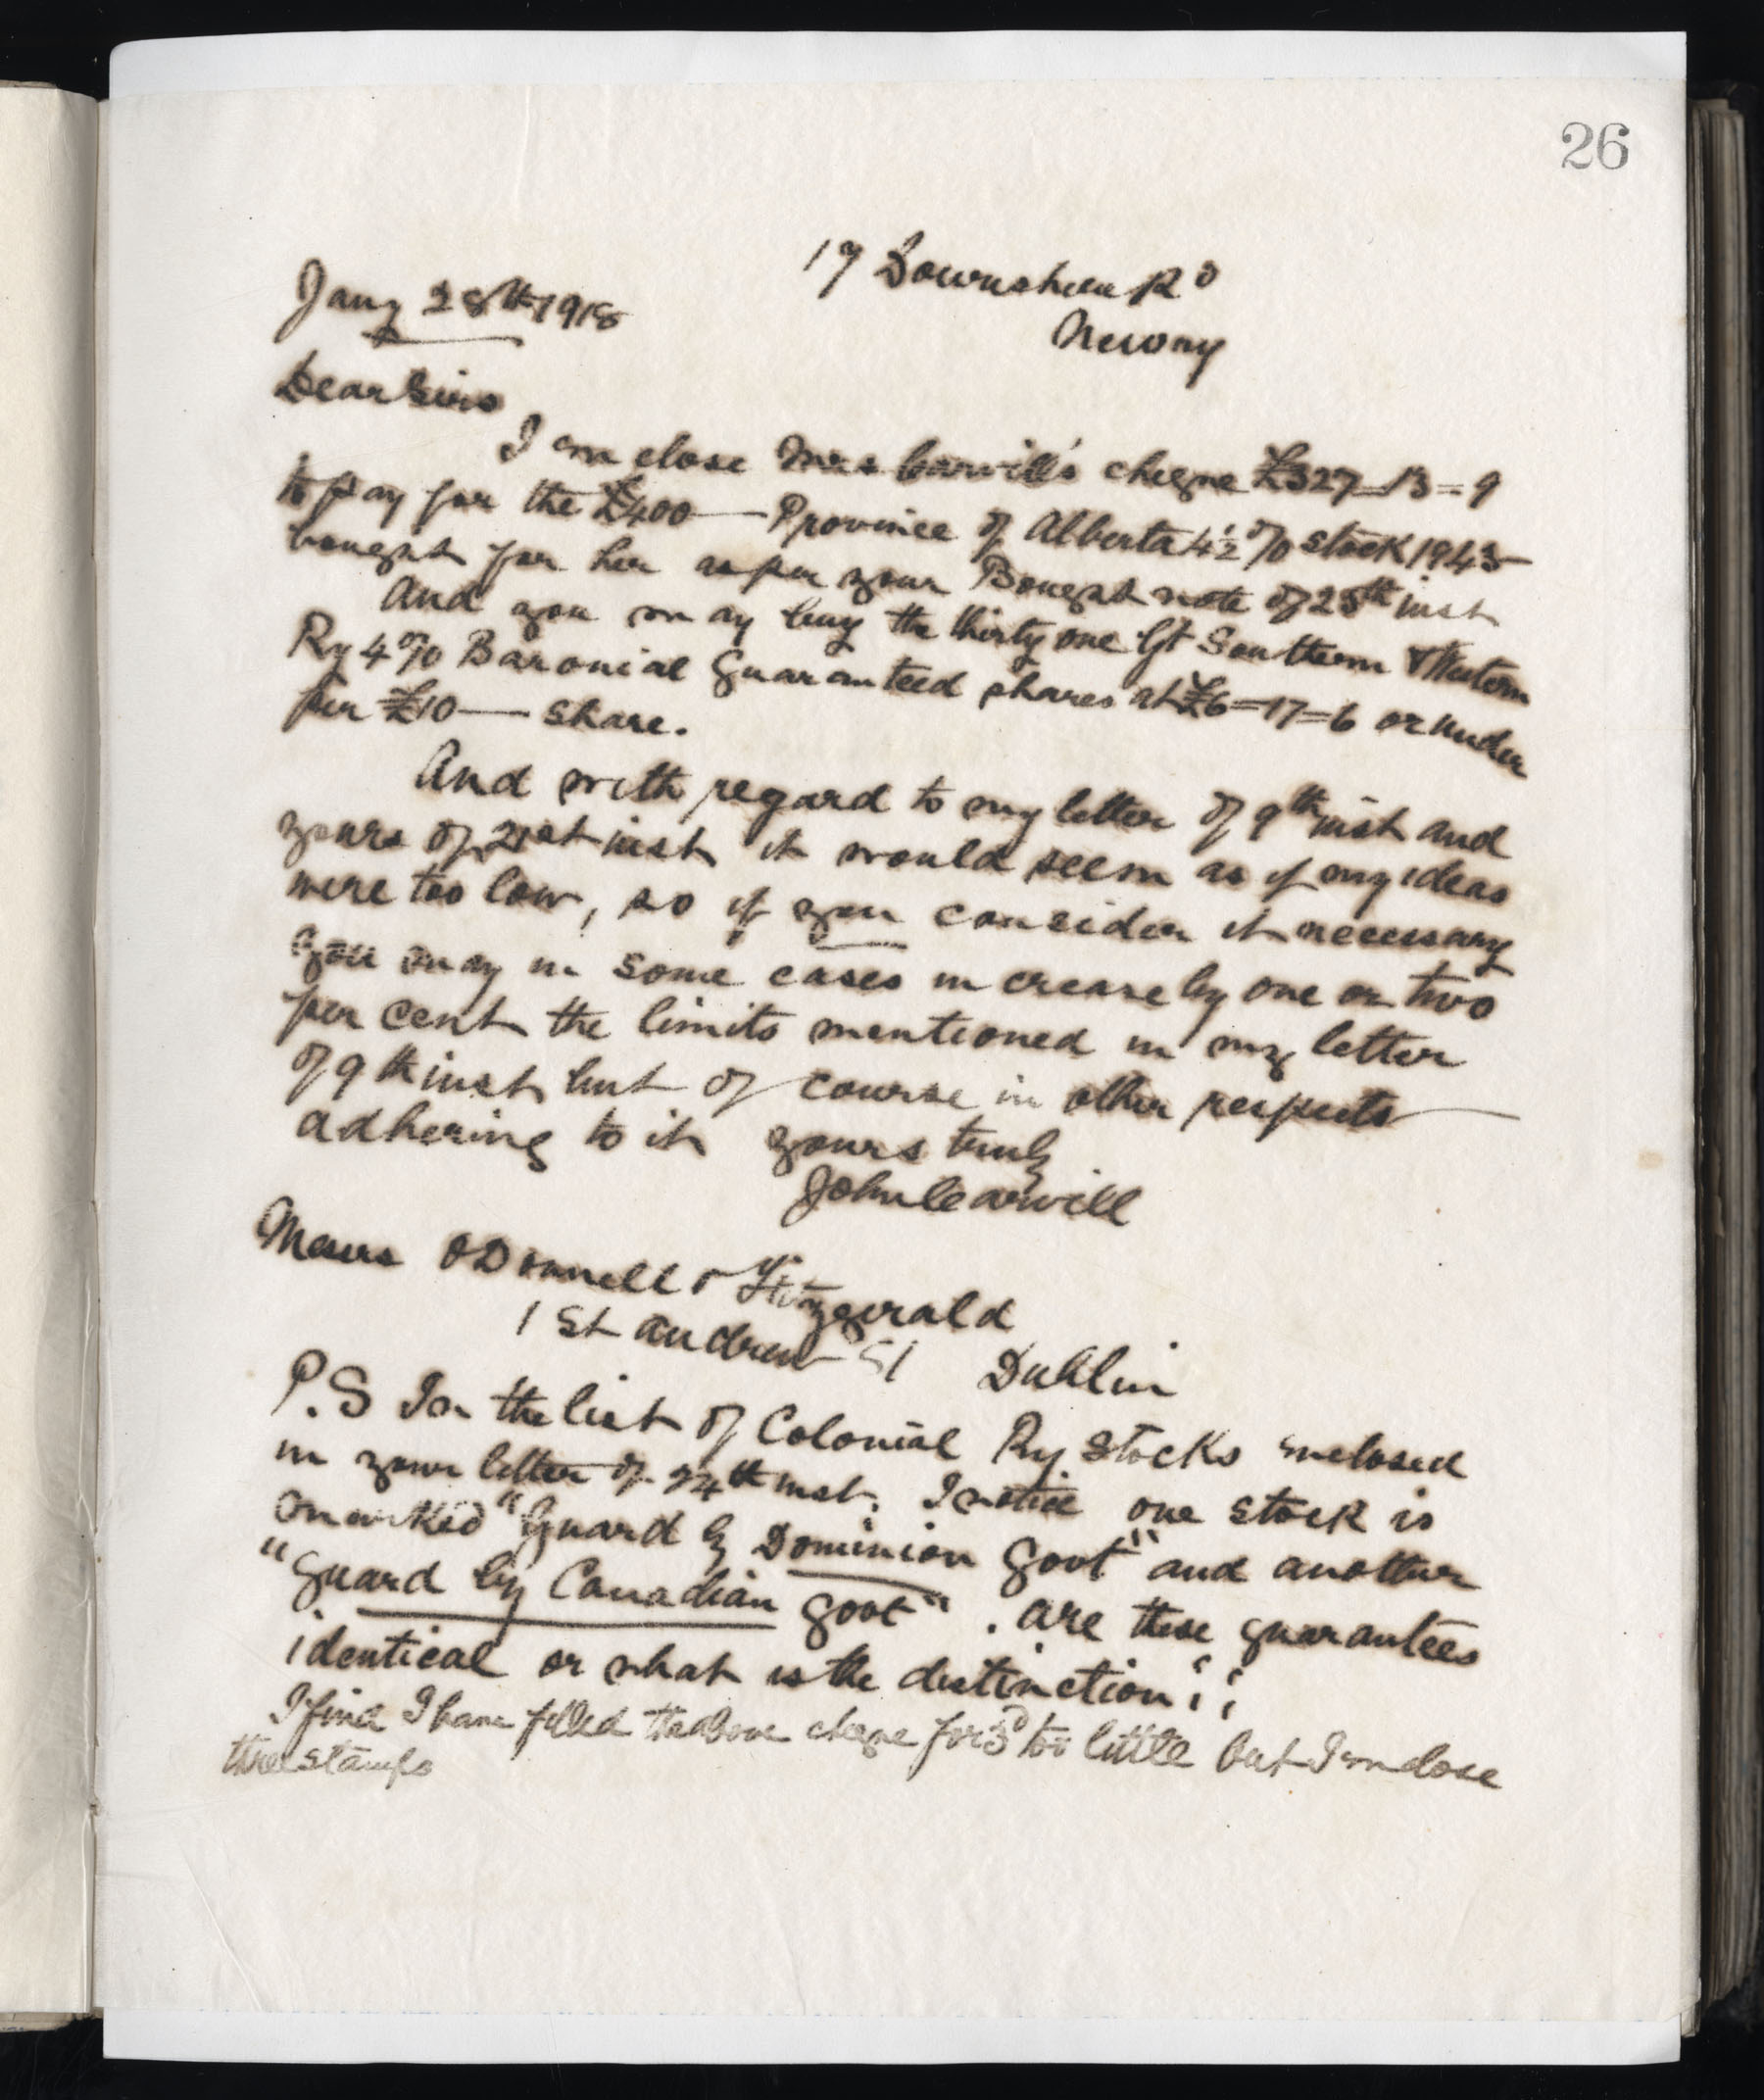 26
17 Downshire Rd
Newry
Jany 28th 1918
Dear Sirs
I enclose Mrs Carvill's cheque £327=13=9
to pay for the £400 — Province of Alberta 4½% stock 1943
bought for her as per your Bought note of 25th inst
And you may buy the thirty one Gt Southern & Western
Ry 4% Baronial Guaranteed shares at £6=17=6 or under
per £10 — share.
And with regard to my letter of 9th inst and
yours of 21st inst it would seem as if my ideas
were too low, so if you consider it necessary
you may in some cases increase by one or two
per cent the limits mentioned in my letter
of 9th inst but of course in other respects
adhering to it yours truly
John Carvill
Messrs O'Donnell & Fitzgerald
1 St Andrew St Dublin
P.S In the list of Colonial Ry Stocks enclosed
in your letter of 24th inst. I notice one stock is
marked "Guard by Dominion Govt" and another
"guard by Canadian govt". are these guarantees
identical or what is the distinction ¿¿
I find I have filled the above cheque for 3d too little but I enclose
three stamps